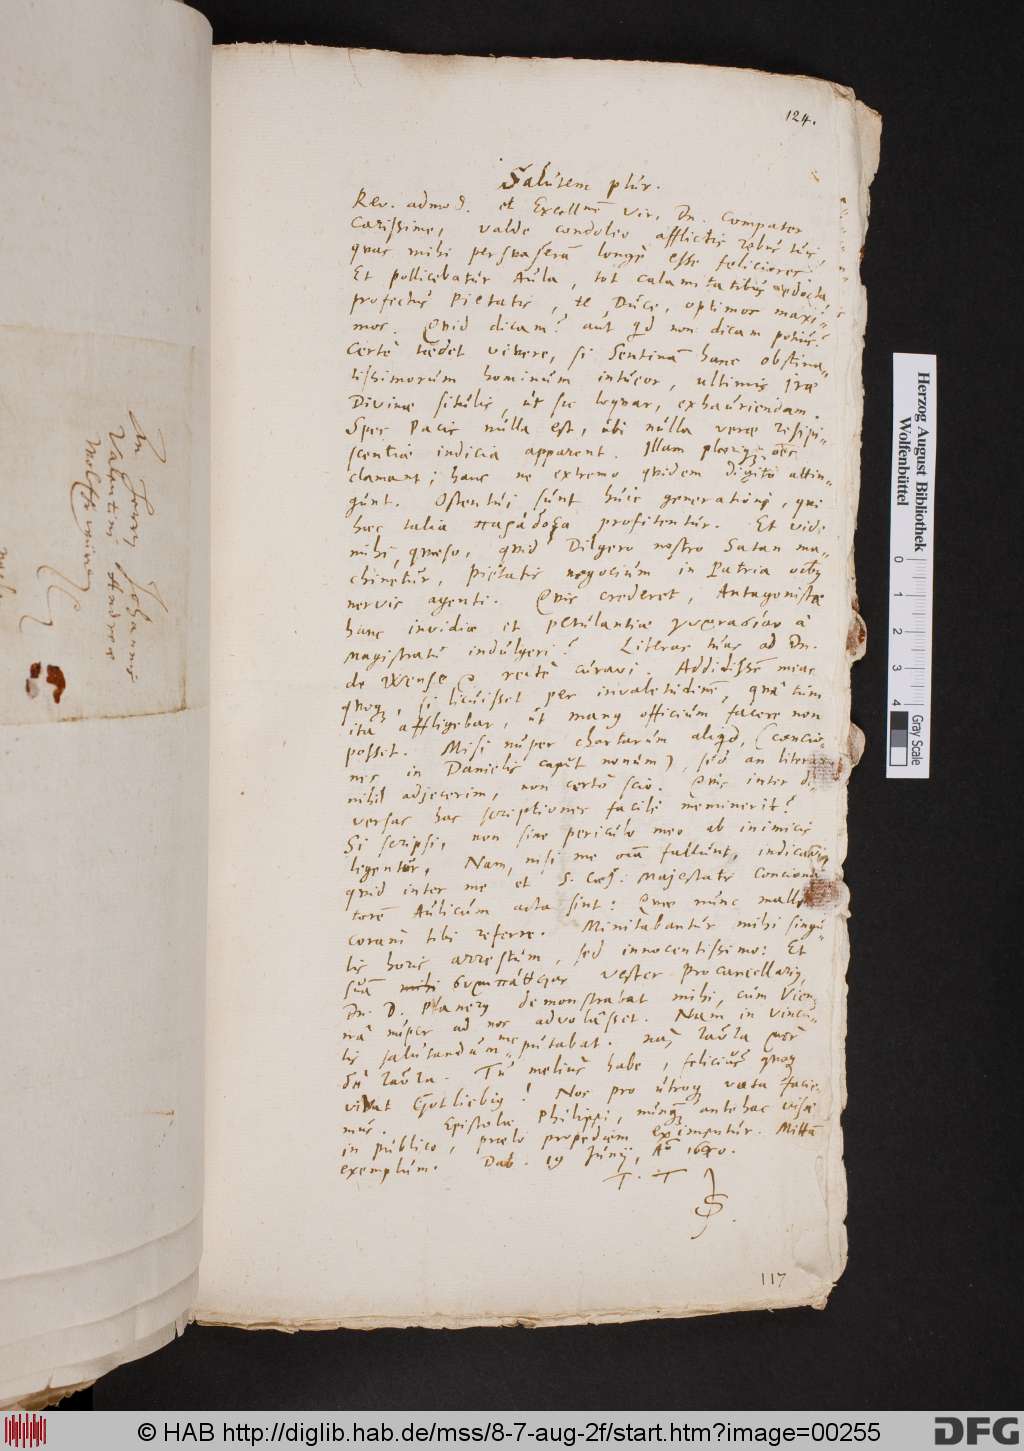 124.
Salutem plur.
Rev. admod. et Excellme Vir, Dn. Compater
Carissime, valde condoleo afflictis rebus tuis,
quas mihi persvaseram longè esse feliciores
Et pollicebatur Aula, tot calamitatibus edocta,
profectus Pietatis, te, Duce, optimos maxi„
mos. Qvid dicam? aut qd non dicam potius?
Certè tædet vivere, si Sentinam hanc obstina„
tissimorum hominum intueor, ultimis Iræ
Divinæ situlis, ut sic loqvar, exhauriendam.
Spes Pacis nulla est, ubi nulla veræ resipi„
scentiæ indicia apparent. Illam pleriq; oēs
clamant; hanc ne extremo qvidem digito attin„
gunt. Ostentui sunt huic generationi, qui
hæc talia παράδοξα profitentur. Et vide
mihi, quæso, qvid Dilgero nostro Satan ma„
chinetur, Pietatis negocium in Patria octy
nervis agenti. Qvis crederet, Antagonistæ
hanc invidiæ et petulantiæ a
Magistratu indulgeri? Literas tuas ad Dn.
de Wense rectè curavi. Addidissē meas
qvoq, si licuisset per invaletudinē, quâ tùm
ita affligebar, ut many officium facere non
posset. Misi nuper chartarum aliqd, (concio„
nes in Danielis caput nonum), sed an literas
nihil adjecerim, non certò scio. Qvis inter di„
versas has scriptiones facilè meminerit?
Si scripsi, non sine periculo meo ab inimicis
legentur, Nam, nisi me oīa fallunt, indicabunt
qvid inter me et S. Cæs: Majestatis Conciona
torē Aulicum acta sint: Quæ nunc mallem
coram tibi referre. Minitabantur mihi singu„
lis horis arrestum, sed innocentissimo: Et
suā vester Procancellariy,
Dn. D. demonstrabat mihi, cum Vien„
nâ nuper ad nos advolasset. Nam in vincu„
lis salutandum me putabat. ταῦτα μὲν
δὴ ταῦτα. Tu meliùs habe, feliciùs qvoq
vivat Gotliebiy! Nos pro utroq vota facie„
mus. Epistolæ Philippi, nunq antehac visæ
in publico, prælo propediem eximentur. Mittā
exemplum. Dab. 19 Junij, Ao 1640.
T. T
S.
117
Herzog August Bibliothek
Wolfenbüttel
0 1 2 3 4
Gray Scale
© HAB http://diglib.hab.de/mss/8-7-aug-2f/start.htm?image=00255
DFG